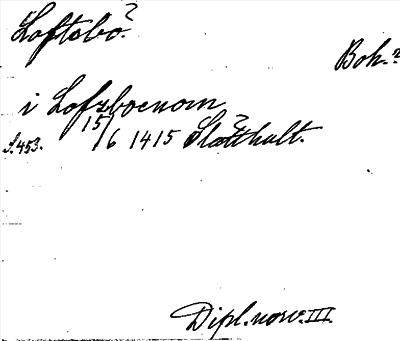 Loftsbo?
Boh.?
i Lofzboenom
S. 453. 15/6 1415 Slætthult.?
Dipl. norv. III.